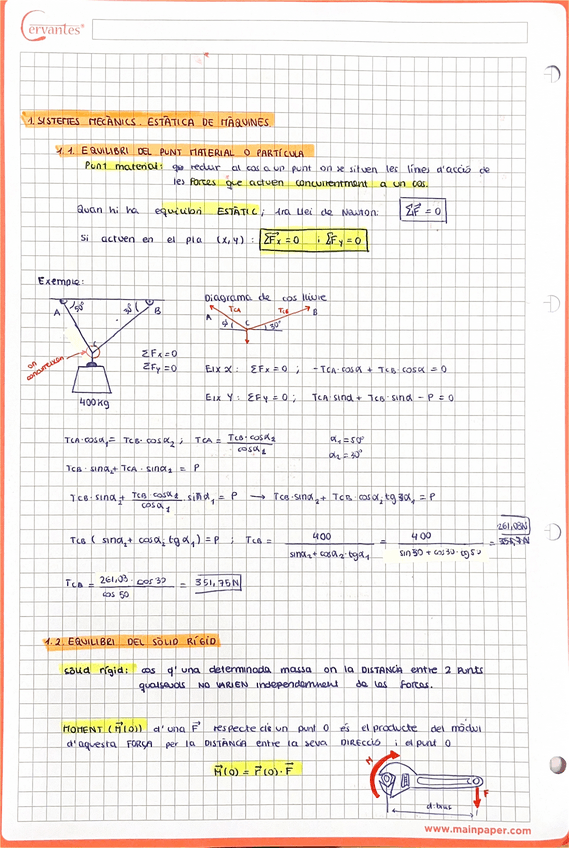 Cervantes®
1. SISTEMES MECÀNICS. ESTÀTICA DE MÀQUINES
1.1. EQUILIBRI DEL PUNT MATERIAL O PARTÍCULA
Punt material: es reduir al cos a un punt on se situen les línies d'acció de
les forces que actuen concurrentment a un cos.
Quan hi ha equilibri ESTÀTIC; 1ra llei de Newton: ΣF⃗ = 0
Si actuen en el pla (x,y): ΣF⃗x = 0 i ΣF⃗y = 0
Exemple:
Diagrama de cos lliure
A 50° 30° B
TCA TCB
A C 30° B
C
on concurreixen
400 kg
ΣFx = 0
ΣFy = 0
Eix X: ΣFx = 0; -TCA·cosα + TCB·cosα = 0
Eix Y: ΣFy = 0; TCA sinα + TCB·sinα - P = 0
TCA·cosα₁ = TCB·cosα₂; TCA = TCB·cosα₂ / cosα₁
α₁ = 50°
α₂ = 30°
TCB·sinα₂ + TCA·sinα₂ = P
TCB·sinα₂ + TCB·cosα₂ / cosα₁ · sinα₁ = P → TCB·sinα₂ + TCB·cosα₂ tgα₁ = P
TCB (sinα₂ + cosα₂ tgα₁) = P; TCB = 400 / sinα₂ + cosα₂·tgα₁ = 400 / sin30 + cos30·tg50 = 261,03N
351,7N
TCB = 261,03·cos 30 / cos 50 = 351,75N
1.2. EQUILIBRI DEL SÒLID RÍGID
Sòlid rígid: cos d'una determinada massa on la DISTÀNCIA entre 2 punts
qualsevols NO VARIEN independentment de les forces.
MOMENT (M⃗(0)) d'una F⃗ respecte d'un punt 0 és el producte del mòdul
d'aquesta FORÇA per la DISTÀNCIA entre la seva DIRECCIÓ i el punt 0
M⃗(0) = r⃗(0)·F⃗
M
F
d: braç
www.mainpaper.com